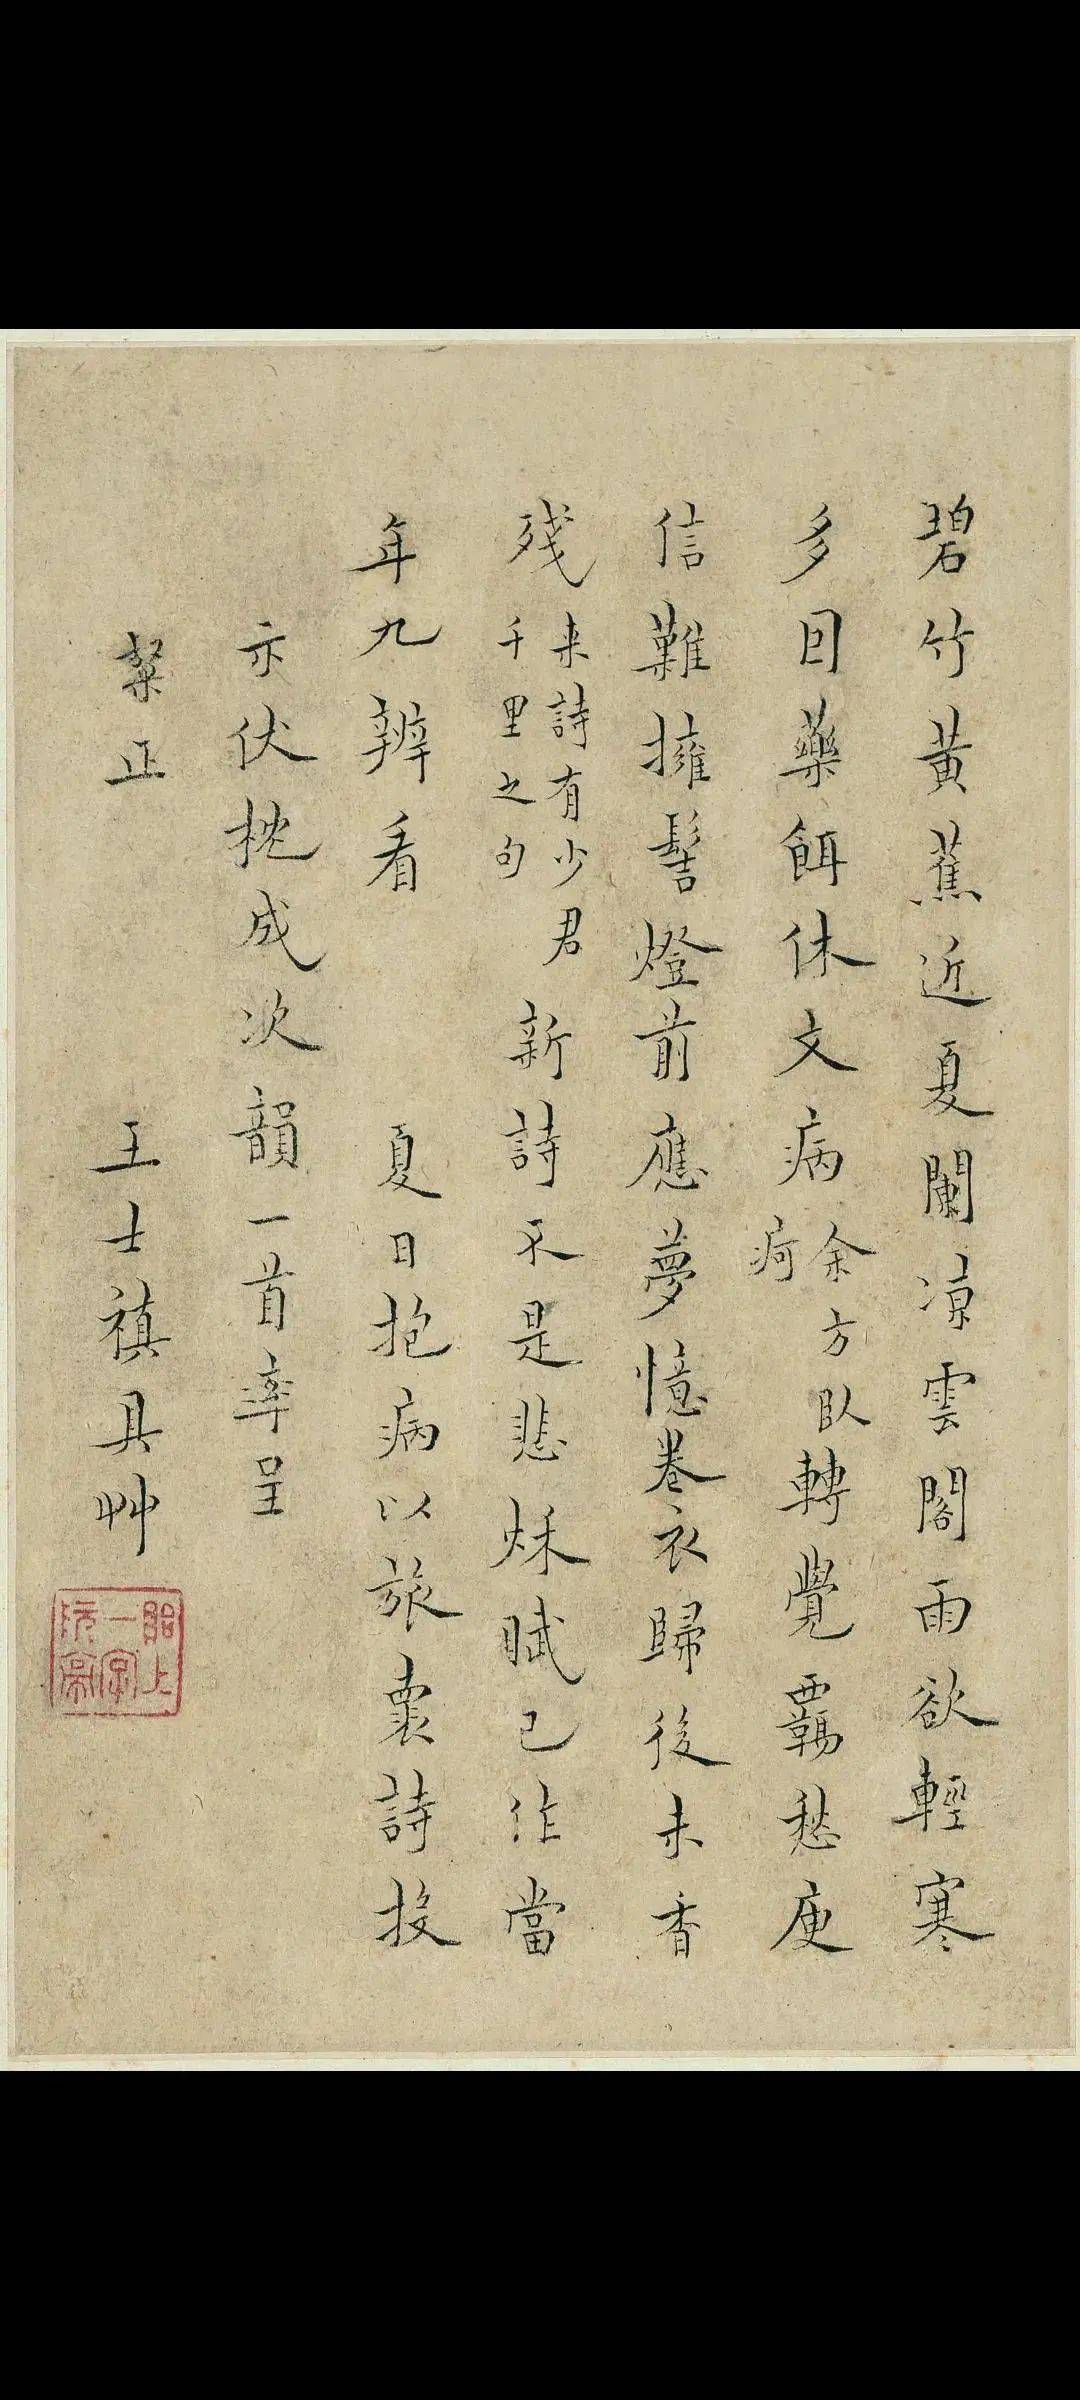 碧竹黃蕉近夏闌涼雲閣雨欲輕寒
多因藥餌休文病余方臥疴轉覺覊愁庾
信難擁髻燈前應夢憶卷衣歸後未香
殘來詩有少君千里之句新詩不是悲秌賦已作當
年九辨看 夏日抱病以旅裏詩投
示伏枕成次韻一首率呈
粲正 王士禛具艸